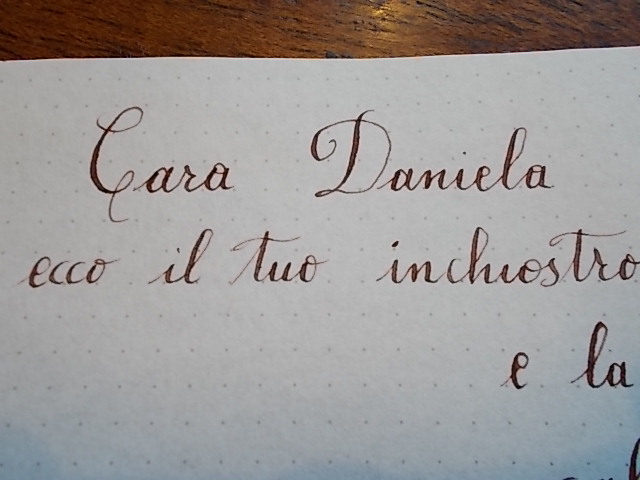 Cara Daniela
ecco il tuo inchiostro
e la